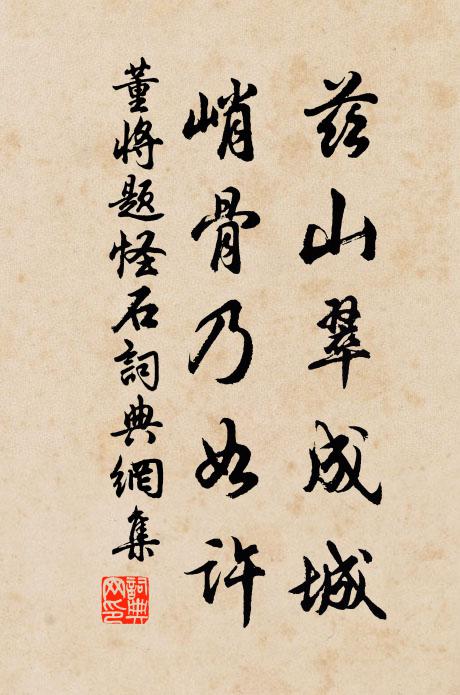 茲山翠成城
峭骨乃如許
董將題怪石詞典網集
詞典
网印